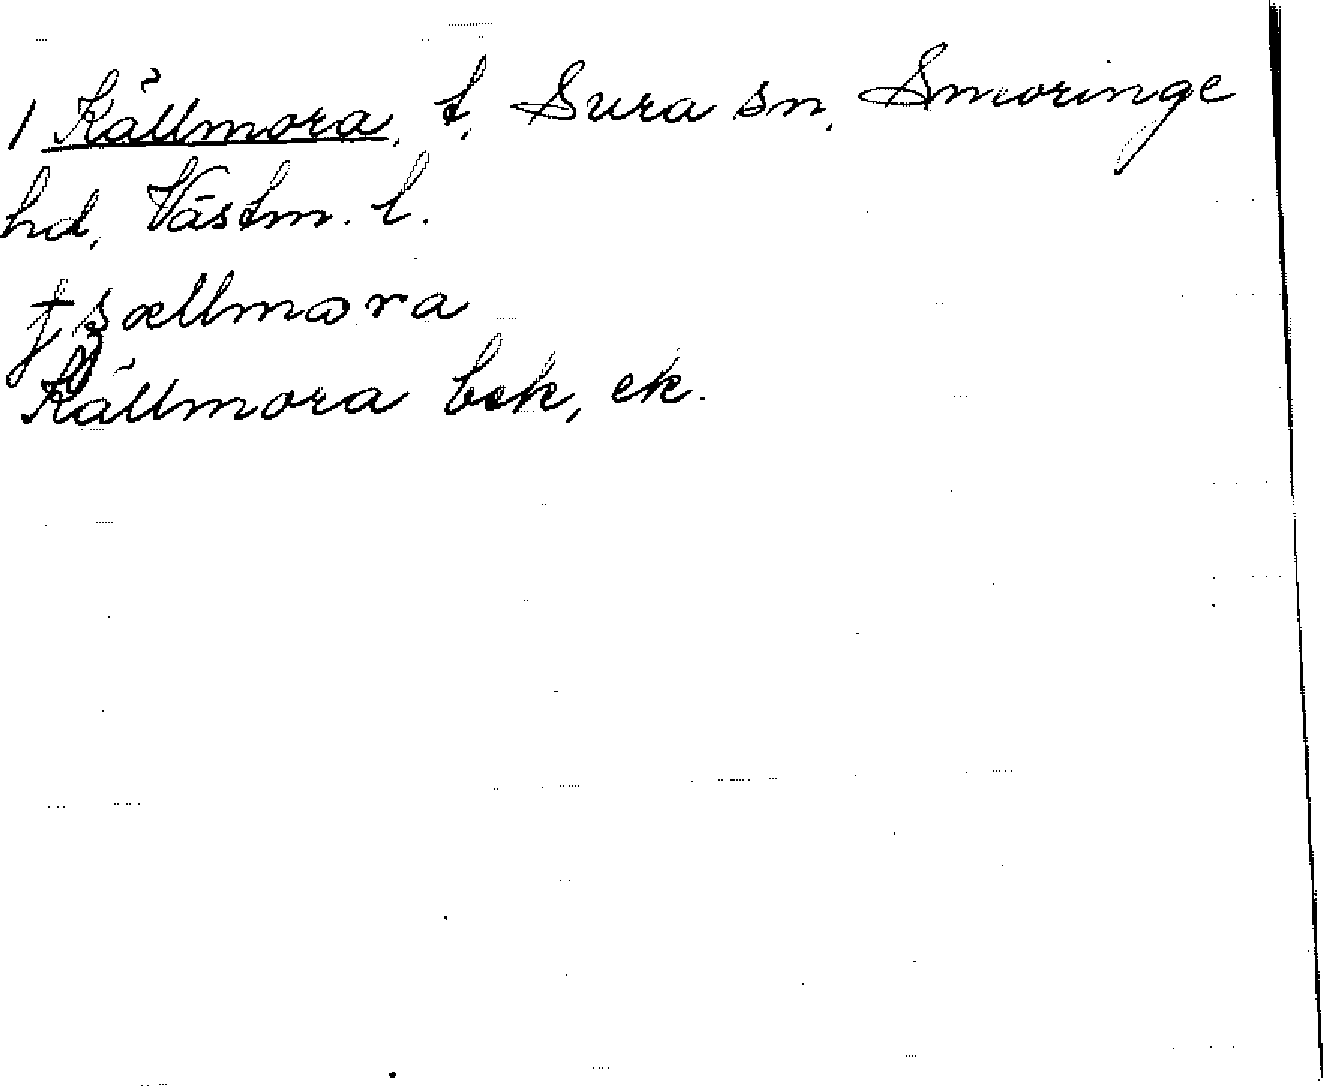 1 Källmora, t, Sura sn, Snevringe
hd, Västm. l.
Källmora bek, ek.